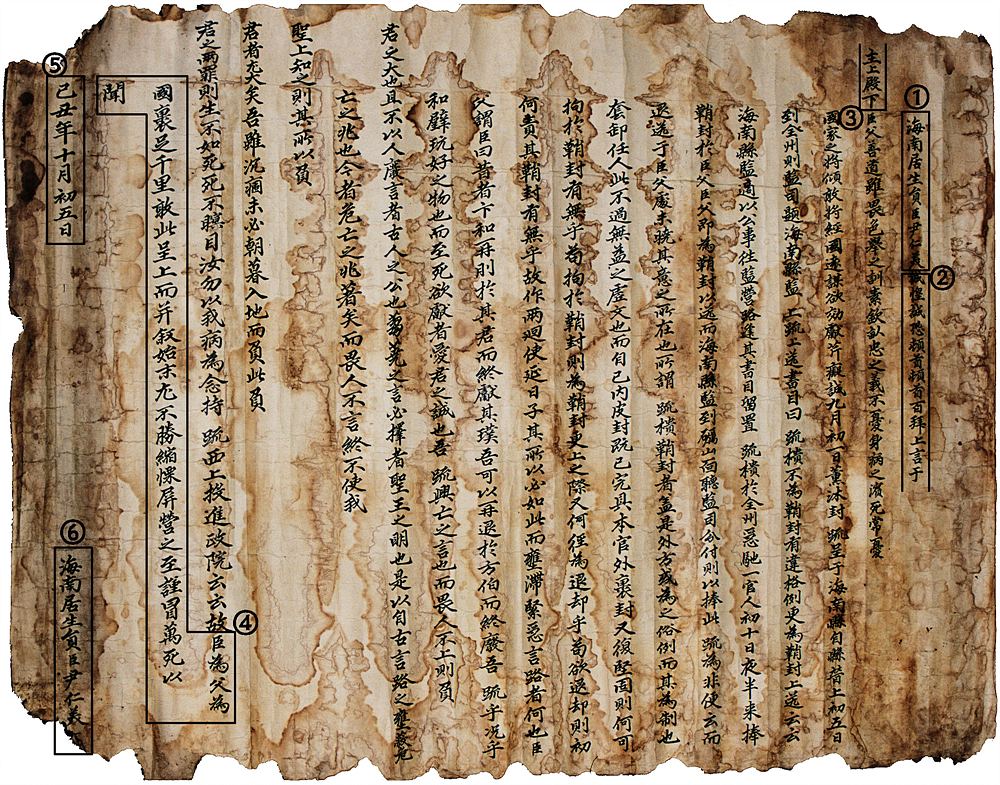 ①
海南居生員臣尹仁義誠惶誠恐頓首頓首百拜上言于
②
主上殿下臣父善道雖畏色擧之訓素欽畎忠之義不憂身病之濱死常憂
③
國家之將傾敢將經國遠謀欲効獻芹癡誠九月初八日薰沐封 疏呈于海南縣自縣着上初五日
到全州則監司題海南縣監 上疏上送書目曰 疏樻不爲鞘封有違格例更爲鞘封上送云云
海南縣監適以公事往監營路逢其書目留置 疏樻於全州急馳一官人初十日夜半來捧
鞘封於臣父臣父即爲鞘封以送而海南縣監到礪山面聽監司分付則以捧此 疏爲非使云而
退送于臣父處未曉其意之所在也所謂 疏樻鞘封者盖是外方或爲之俗例而其爲制也
套卸任人此不過無益之虛文也而自己內皮封既已完具本官外裹封又復堅固則何可
拘於鞘封有無乎苟拘於鞘封則爲鞘封更上之際又何徑爲退却乎苟欲退却則初
何責其鞘封有無乎故作兩廻使延日子其所以必如此而壅滯緊急言路者何也臣
父謂臣曰昔者卞和再刖於其君而終獻其璞吾可以再退於方伯而終廢吾 疏乎況乎
和璧玩好之物也而至死欲獻者愛君之誠也吾 疏興亡之言也而畏人不上則負
君之大也且不以人廢言者古人之公也蒭蕘之言必擇者聖王之明也是以自古言路之壅蔽危
亡之兆也今者危亡之兆著矣而畏人不言終不使我
聖上知之則其所以負
君者尤大矣吾雖沉痼未必朝暮入地而負此負
君之兩罪則生不如死死不瞑目汝勿以我病爲念持 疏西上投進政院云云故臣爲父爲
④
國裹足千里敢此呈上而并叙始末尤不勝縮慄屛營之至謹冒萬死以
聞
⑤
己丑年十月初五日
⑥
海南居生員臣尹仁義